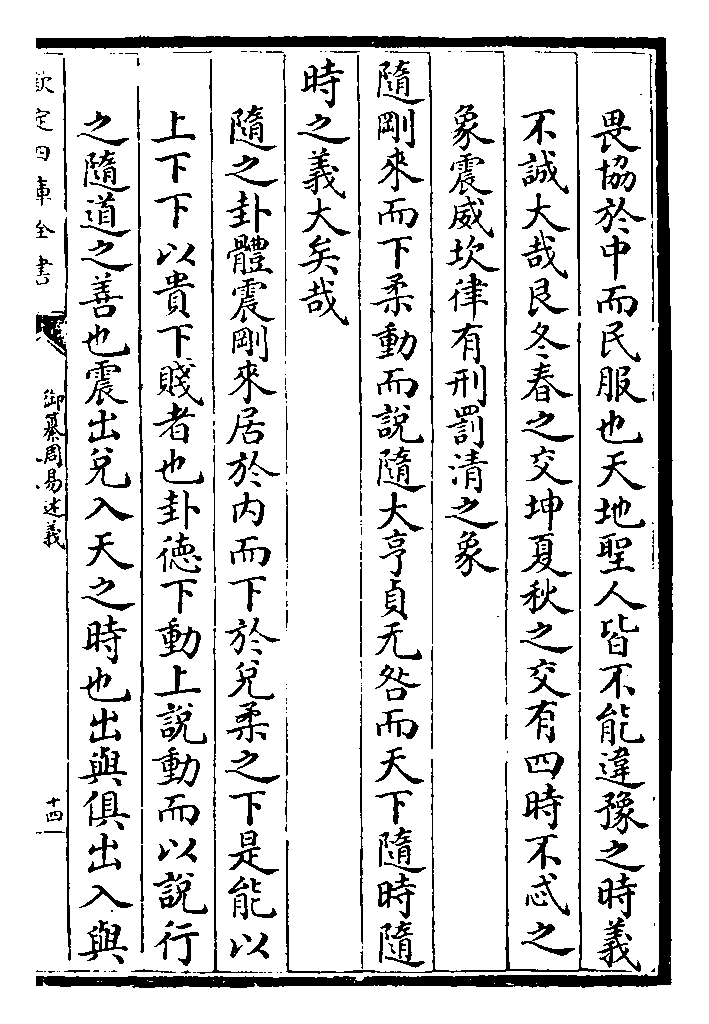 畏協於中而民服也天地聖人皆不能違豫之時義
不誠大哉艮冬春之交坤夏秋之交有四時不忒之
象震威坎律有刑罰清之象
隨剛來而下柔動而說隨大亨貞无咎而天下隨時隨
時之義大矣哉
隨之卦體震剛來居於内而下於兊柔之下是能以
上下下以貴下賤者也卦徳下動上說動而以說行
之隨道之善也震出兊入天之時也出與俱出入與
欽定四庫全書
御纂周易述義
十四